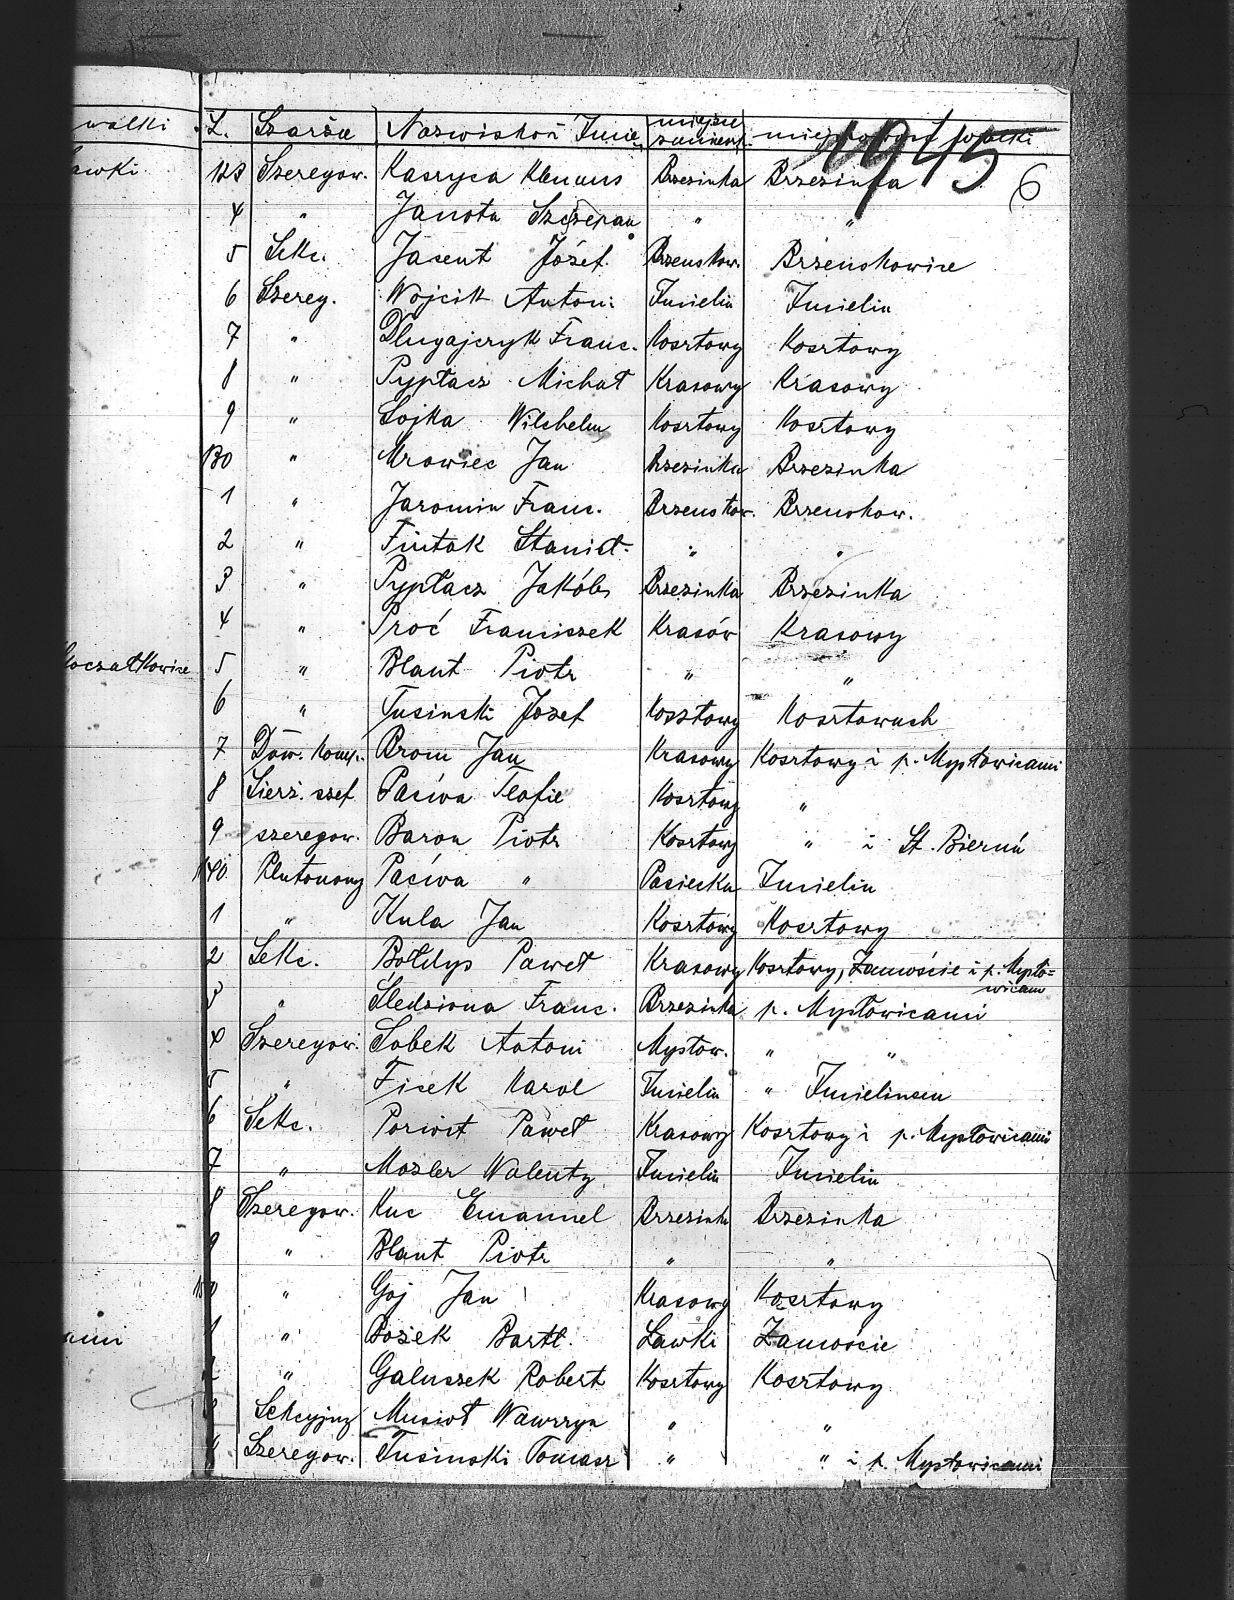 walki L. Szarża Nazwisko i Imię miejsce zamieszk. miejscowość walki
1945
6
awki. 123 Szeregow. Kasryca Klemens Brzezinka Brzezinka
4 " Janota Szczepan " "
5 Sekc. Jasent Józef. Brzenskow. Brzenskowice
6 Szereg. Wojcik Antoni Imielin Imielin
7 " Długajczyk Franc. Kosztowy Kosztowy
8 " Pyptacz Michał Krasowy Krasowy
9 " Sojka Wilchelm Kosztowy Kosztowy
130 " Mrowiec Jan Brzezinka Brzezinka
1 " Jaromin Franc. Brzenskow. Brzenskow.
2 " Fintak Stanisł. " "
3 " Pyptacz Jakób Brzezinka Brzezinka
4 " Proć Franciszek Krasów Krasowy
koczatkowice 5 " Blaut Piotr " "
6 " Tusinski Józef Kosztowy Kosztowach
7 Dow. Komp. Brom Jan Krasowy Kosztowy i p. Mysłowicami
8 Sierż. szef Paćwa Teofil Kosztowy "
9 szeregow. Baron Piotr Kosztowy " i St. Bieruń
140 Plutonowy Paćwa " Pasieka Imielin
1 " Kula Jan Kosztowy Kosztowy
2 Sekc. Bołdys Paweł Krasowy Kosztowy, Zamoście i p. Mysło-
wicam
3 " Śledziona Franc. Brzezinka p. Mysłowicami
4 Szeregow. Sobek Antoni Mysłow. " "
5 " Ficek Karol Imielin " Imielinem
6 Sekc. Porwit Paweł Krasowy Kosztowy i p. Mysłowicami
7 " Mozler Walenty Imielin Imielin
8 Szeregow. Kuc Emanuel Brzezinka Brzezinka
9 " Blaut Piotr " "
150 " Goj Jan Krasowy Kosztowy
ami 1 " Bożek Bartł. Ławki Zamoście
2 " Galuszek Robert Kosztowy Kosztowy
3 Sekcyjny Musioł Wawrzyn " "
4 Szeregow. Tusinski Tomasz " " i p. Mysłowicami